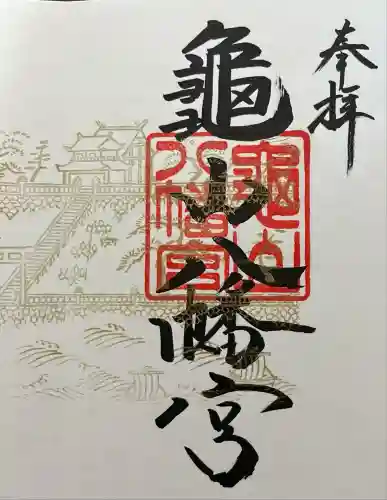 奉拝
龜山八幡宮
龜山
八幡宮